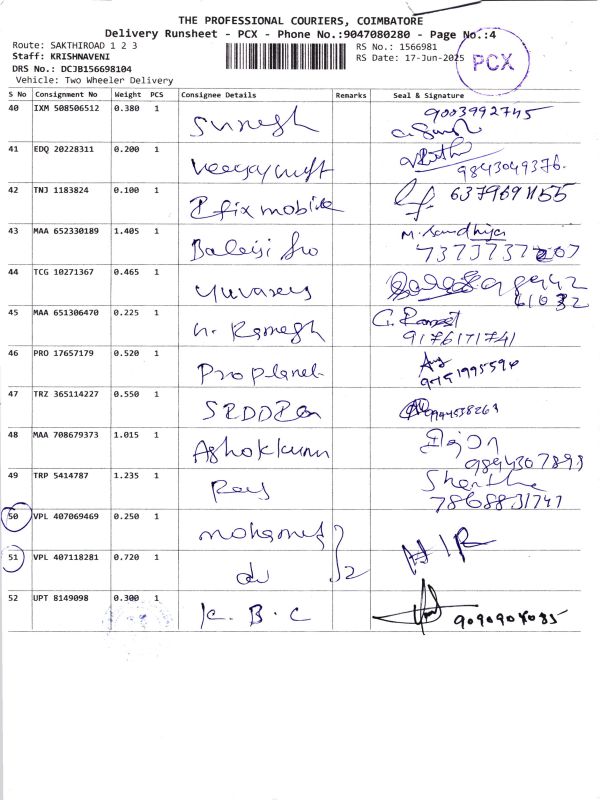 THE PROFESSIONAL COURIERS, COIMBATORE
Delivery Runsheet - PCX - Phone No.:9047080280 - Page No.:4
Route: SAKTHIROAD 1 2 3
RS No.: 1566981
Staff: KRISHNAVENI
RS Date: 17-Jun-2025
PCX
DRS No.: DCJB156698104
Vehicle: Two Wheeler Delivery
S No Consignment No Weight PCS Consignee Details Remarks Seal & Signature
40 IXM 508506512 0.380 1 Suresh 9003992745
41 EDQ 20228311 0.200 1 9843049376.
42 TNJ 1183824 0.100 1 P fix mobile 6379691155
43 MAA 652330189 1.405 1 Balaji M. Sandhiya
44 TCG 10271367 0.465 1 Yuvaraj
45 MAA 651306470 0.225 1 Ramesh G. Ramesh
9176171741
46 PRO 17657179 0.520 1 Pro planet
9751995594
47 TRZ 365114227 0.550 1 9944538263
48 MAA 708679373 1.015 1 Ashokkumar
9894307893
49 TRP 5414787 1.235 1 Raj
7868831747
50 VPL 407069469 0.250 1 mohamed
51 VPL 407118281 0.720 1 do 2
52 UPT 8149098 0.300 1 K. B. C 9090904085